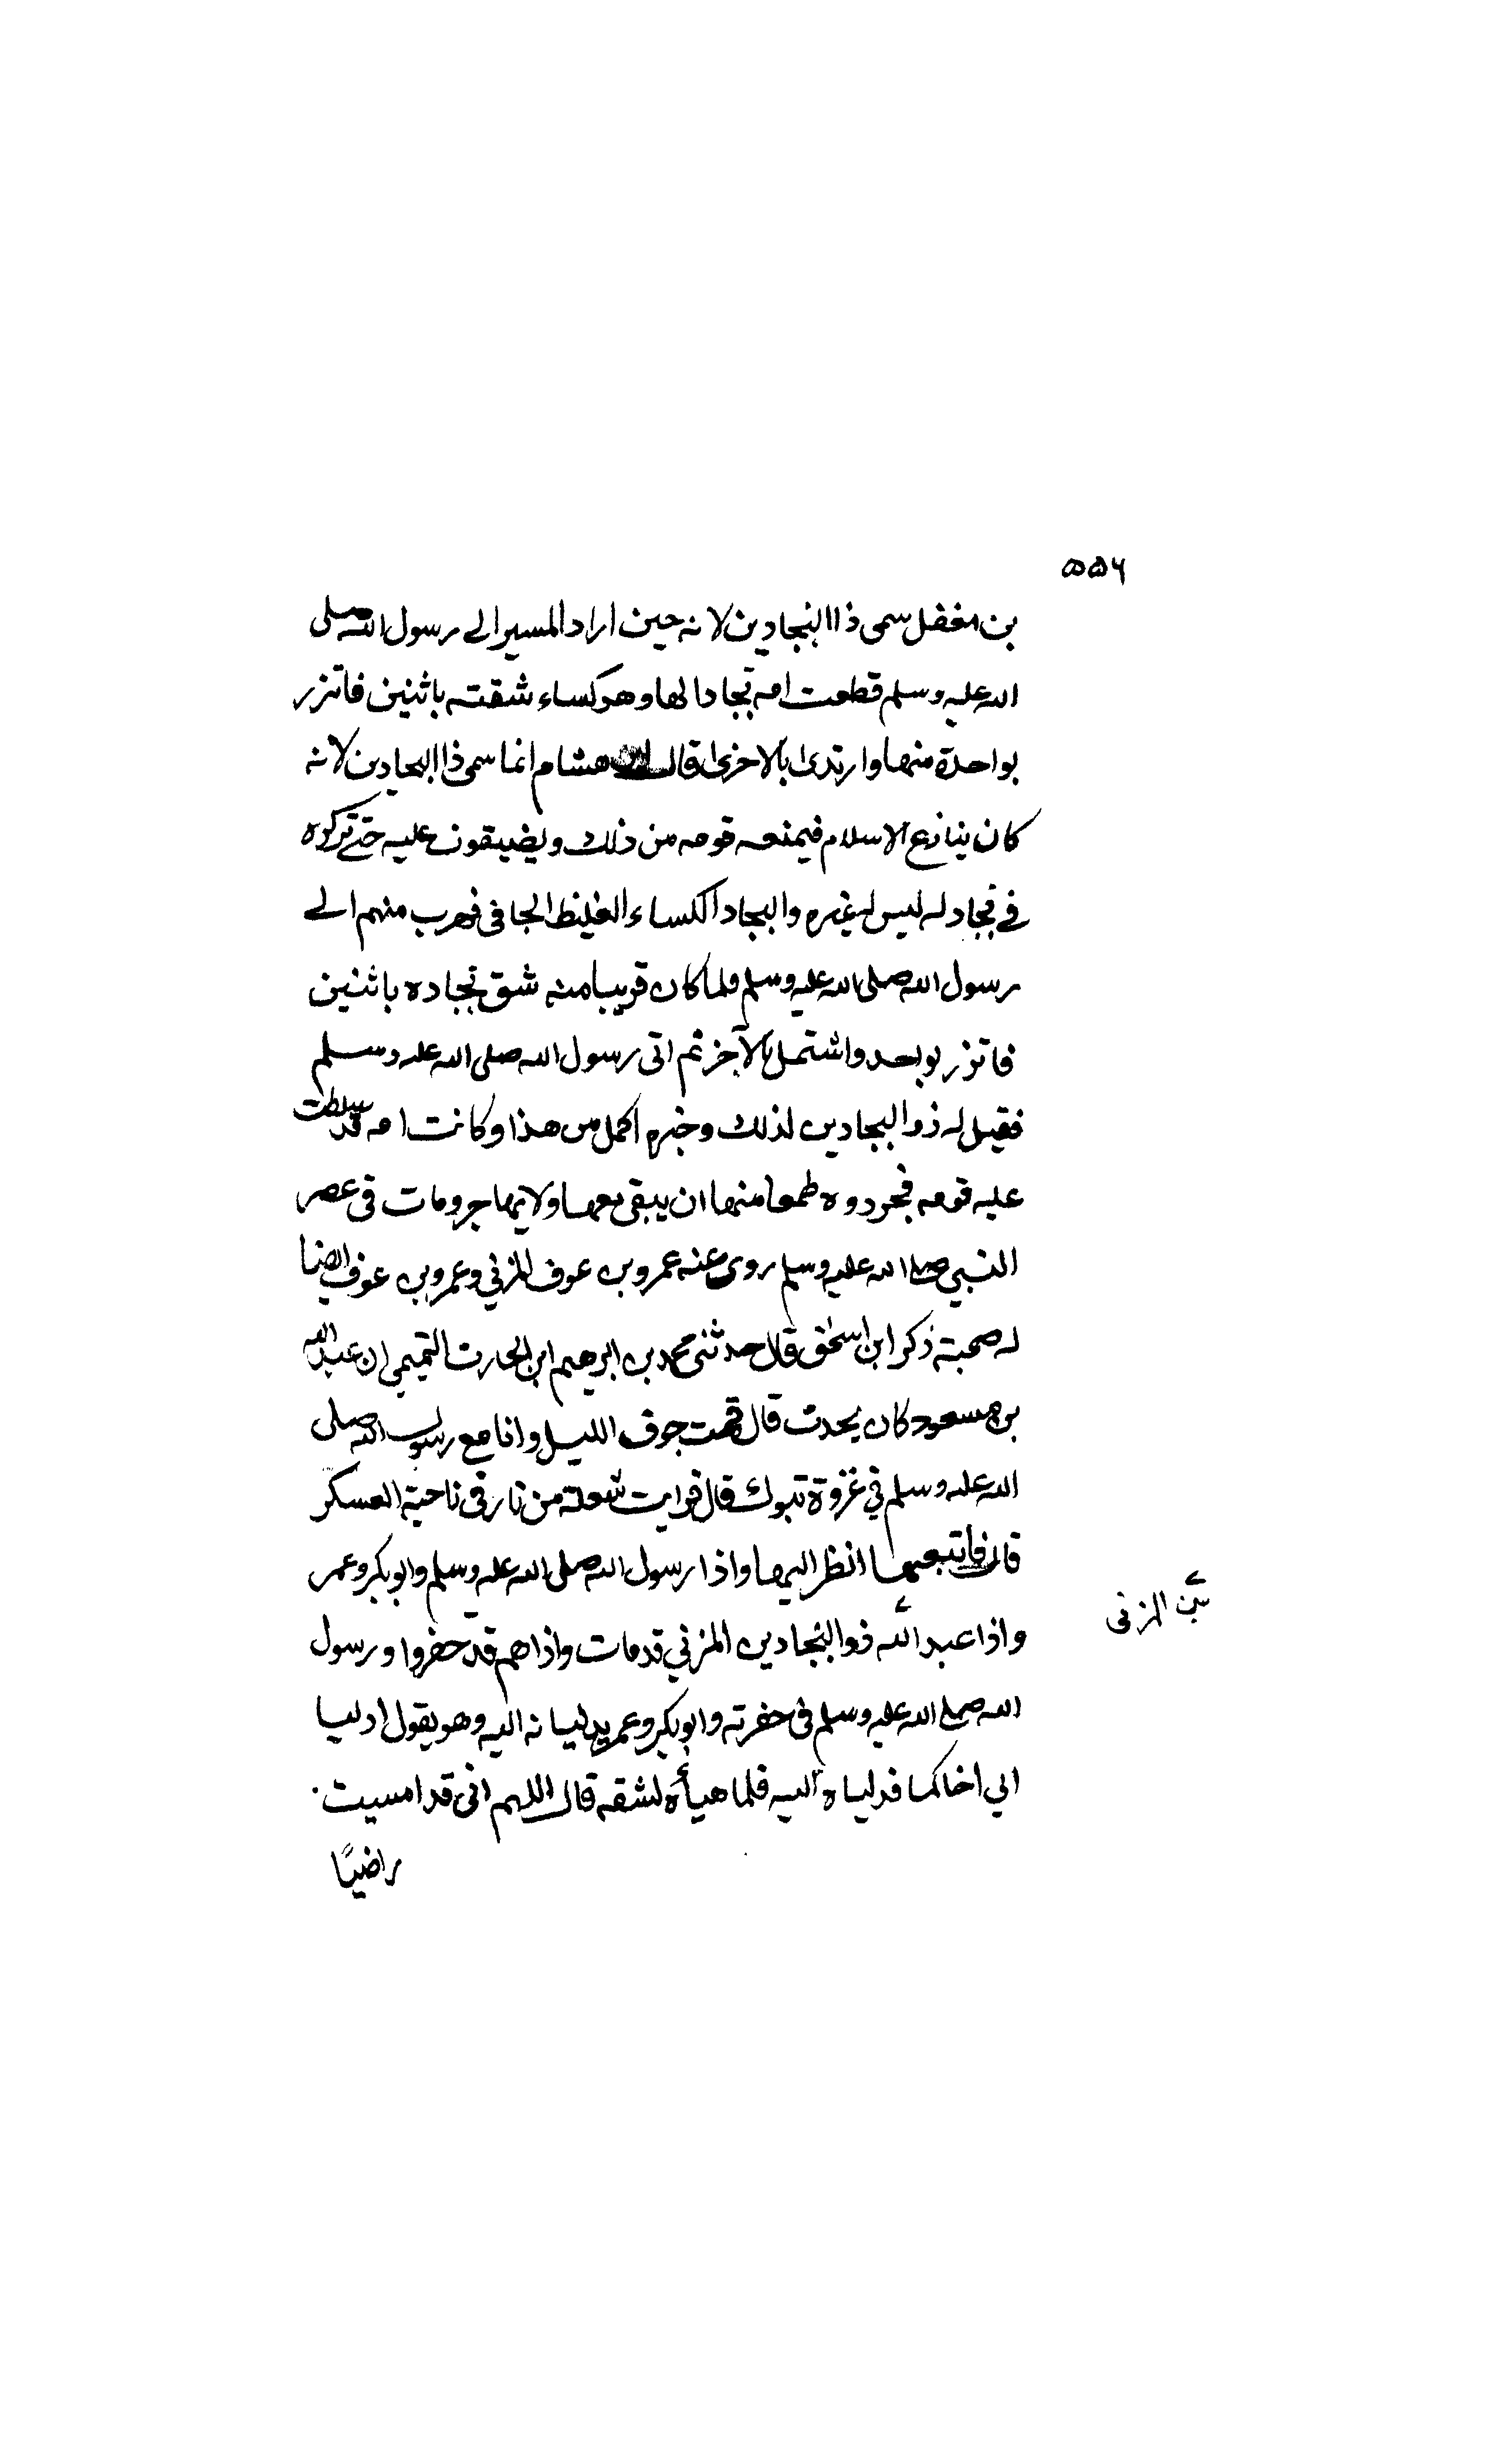 ٥٥٦
بن مغفل سمى ذا النجادين لانه حين اراد المسير الے رسول الله صلى
الله عليه وسلم قطعت امه نجادا لها وهو كساء شقته باثنين فاتزر
بواحدة منها وارتدى بالاخرى قال ابن هشام انما سمى ذا البجادين لانه
كان ينازع الاسلام فيمنعه قومه من ذلك ويضيقون عليه حتے تركوه
في بجاد له ليس له غيره والبجاد الكساء الغليظ الجافى فهرب منهم الے
رسول الله صلى الله عليه وسلم فلما كان قريبا منه شق بجاده باثنين
فاتزر بواحد واشتمل بالآخر ثم اتى رسول الله صلى الله عليه وسلم
فقيل له ذو البجادين لذلك وخبره اكمل من هذا وكانت امه قد سلطت
عليه قومه فجردوه طمعا منها ان يبقى معها ولا يهاجر ومات فى عصر
النبي صلى الله عليه وسلم روى عنه عمرو بن عوف المزني وعمرو بن عوف ايضا
له صحبة ذكر ابن اسحٰق قال حدثنى محمد بن ابرهيم ابن الحارث التميمي ان عبد الله
بن مسعود كان يحدث قال قمت جوف الليل وانا مع رسول الله صلى
الله عليه وسلم في غزوة تبوك قال فرايت شعلة من نار فى ناحية العسكر
قال فاتبعتها انظر اليها واذا رسول الله صلى الله عليه وسلم وابو بكر وعمر
واذا عبد الله ذو البجادين المزني قد مات واذا هم قد حفروا ورسول
المزنى
الله صلى الله عليه وسلم فى حفرته وابو بكر وعمر يدليانه اليه وهو يقول ادليا
الي اخاكما فدلياه اليه فلما هيأه لشقه قال اللهم انى قد امسيت
راضيًا